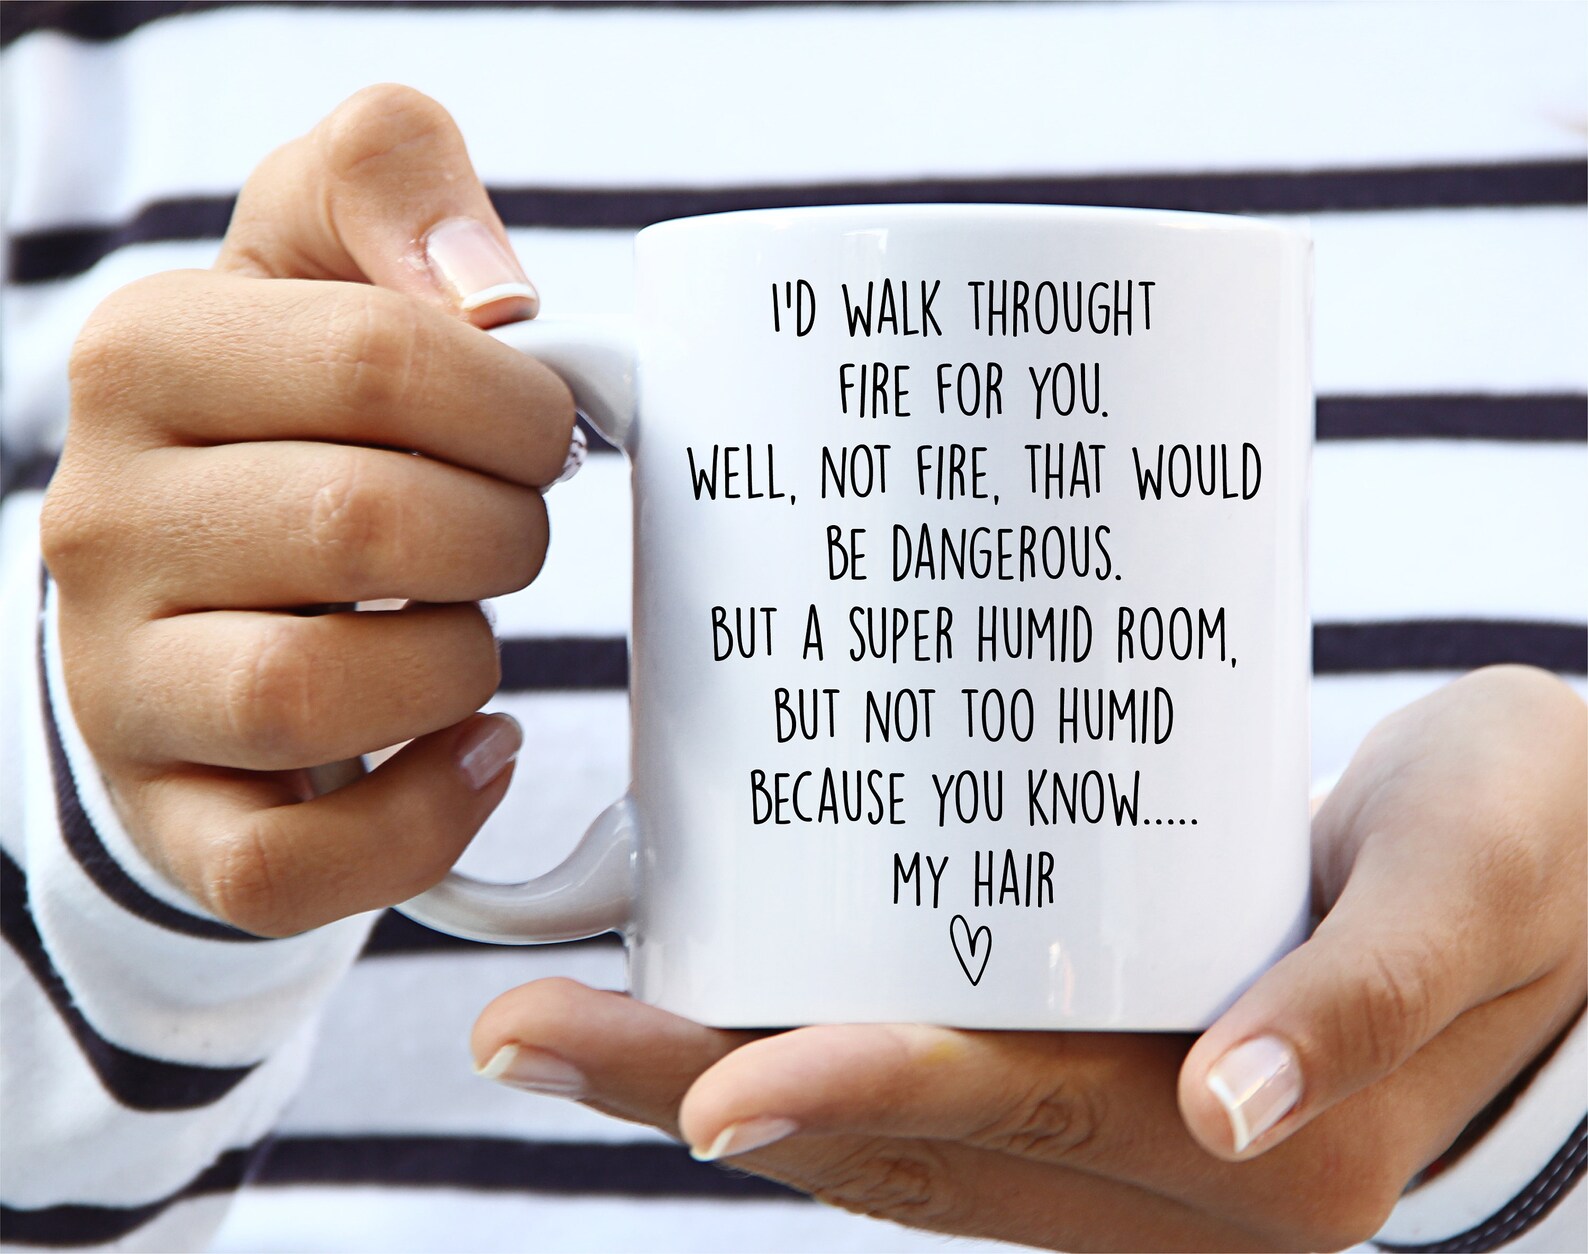 I'D WALK THROUGHT
FIRE FOR YOU.
WELL, NOT FIRE, THAT WOULD
BE DANGEROUS.
BUT A SUPER HUMID ROOM,
BUT NOT TOO HUMID
BECAUSE YOU KNOW.....
MY HAIR